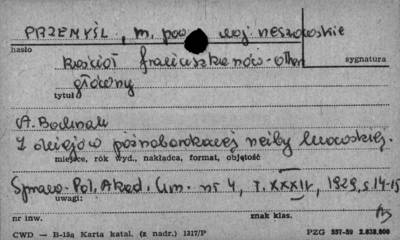 PRZEMYŚL, m. pow. woj rzeszowskie
hasło
sygnatura
kościół franciszkanów - ołtarz
główny
tytuł
A. Bochnak
Z dziejów późnobarokowej rzeźby lwowskiej.
miejsce, rok wyd., nakładca, format, objętość
Spraw. Pol. Akad. Um. nr 4, T. XXXIV, 1929, s. 14-15
uwagi:
nr inw.
znak klas.
CWD — B-15a Karta katal. (z nadr.) 1317/P
PZG